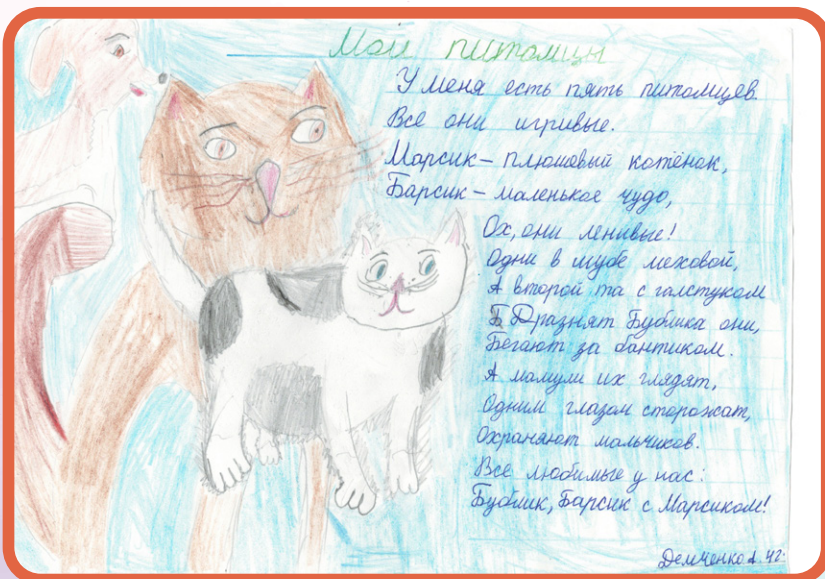 Мои питомцы
У меня есть пять питомцев.
Все они игривые.
Марсик – плюшевый котёнок,
Барсик – маленькое чудо,
Ох, они ленивые!
Одни в шубе меховой,
А второй та с галстуком
Дразнят Бублика они,
Бегают за бантиком.
А мамули их глядят,
Одним глазом сторожат,
Охраняют мальчиков.
Все любимые у нас:
Бублик, Барсик с Марсиком!
Демченко А. 4г.